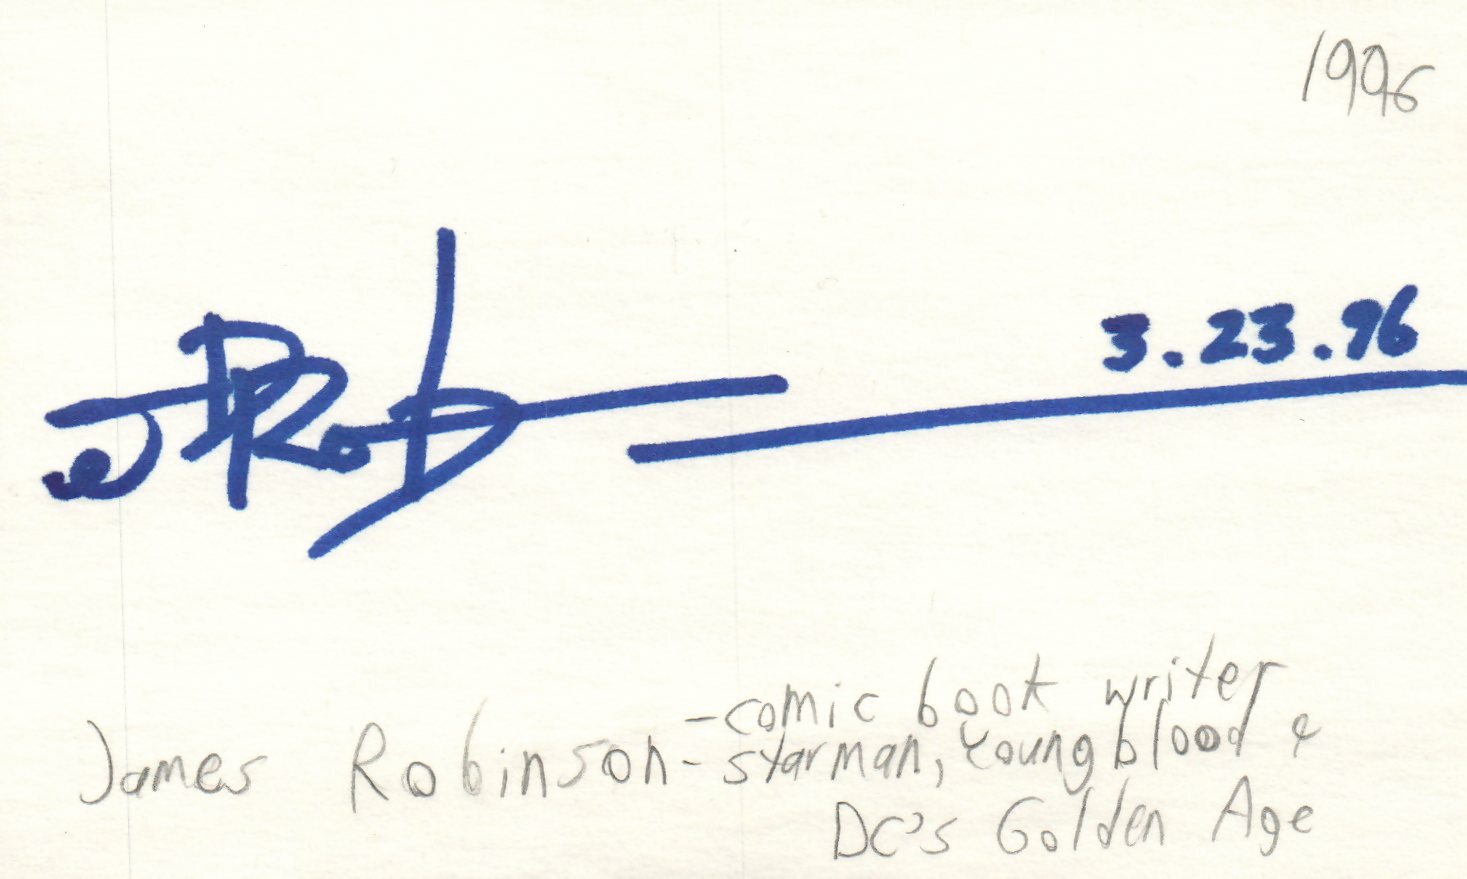 1996
JDRob
3.23.96
-comic book writer
James Robinson-starman, Youngblood &
DC's Golden Age